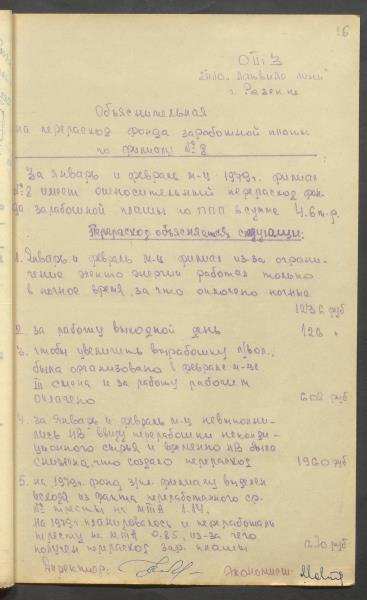 26
ОТиЗ
г. Резекне
Объяснительная
на перерасход фонда заработной платы
по филиалу № 8
За январь и февраль м-ц 1979г. филиал
№ 8 имеет относительный перерасход фон-
да заработной платы по ППП в сумме 4.6 т.р.
Перерасход объясняется следующим:
1. Январь и февраль м-ц филиал из-за ограни-
чение энергии работал только
в ночное время, за что оплачено ночные
1236 руб
2. за работу выходной день 126 "
3. чтобы увеличить выработку
была организовано в феврале м-це
III смена и за работу рабочим
оплачено 608 руб
4. за январь и февраль м-ц невыполни-
лись НВ ввиду переработки неконди-
ционного сырья и временно НВ была
снижена, что создало перерасход 1960 руб
5. на 1979г. фонд з/пл. филиалу выделен
исходя из факта переработанного ср.
№ тресты 1.14.
на 1979г. планировалось и переработали
тресту 0.85, из-за чего
получен перерасход зар. платы 1270 руб
Директор: Экономист: